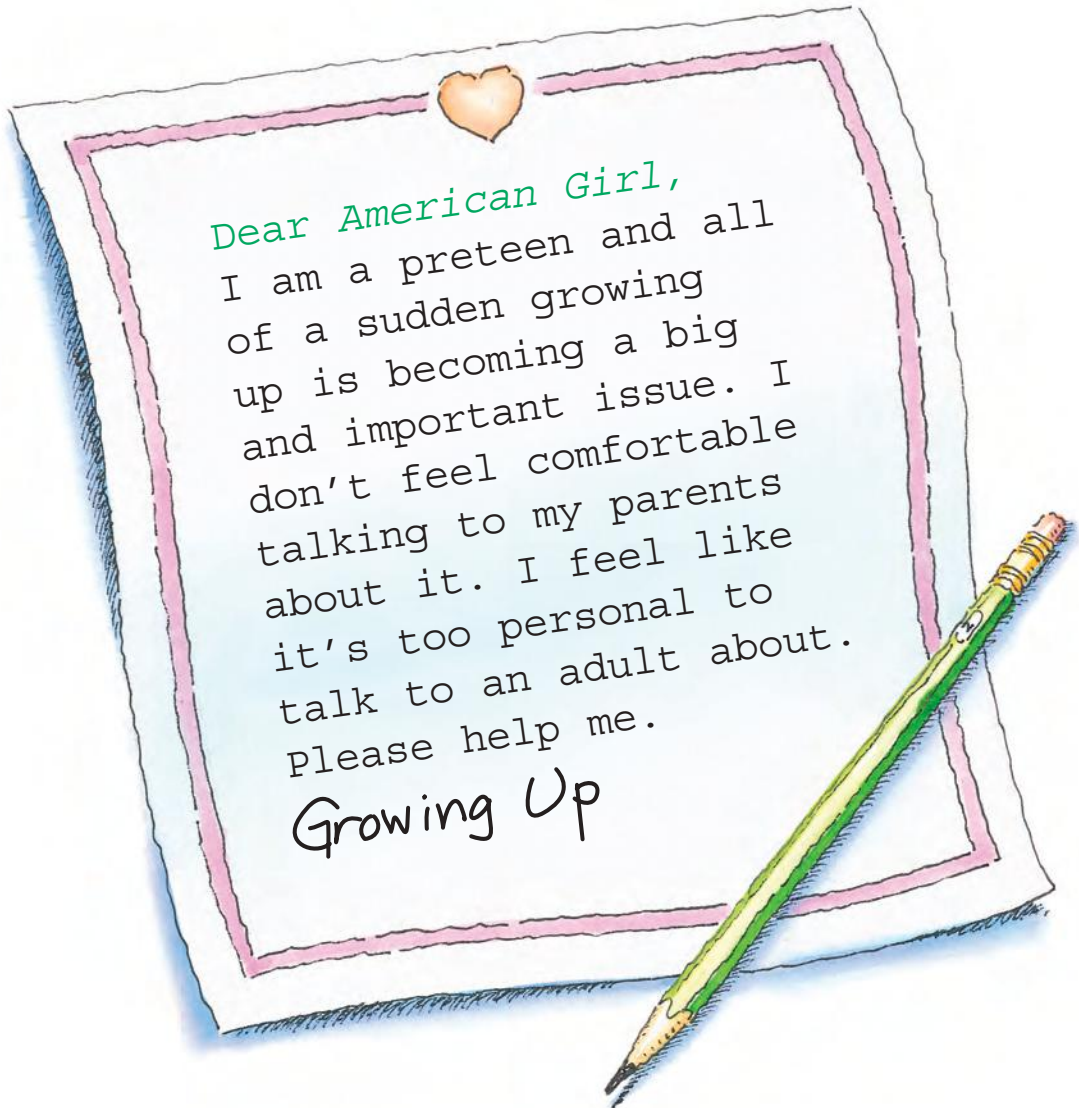 Dear American Girl,
I am a preteen and all
of a sudden growing
up is becoming a big
and important issue. I
don't feel comfortable
talking to my parents
about it. I feel like
it's too personal to
talk to an adult about.
Please help me.
Growing Up
2